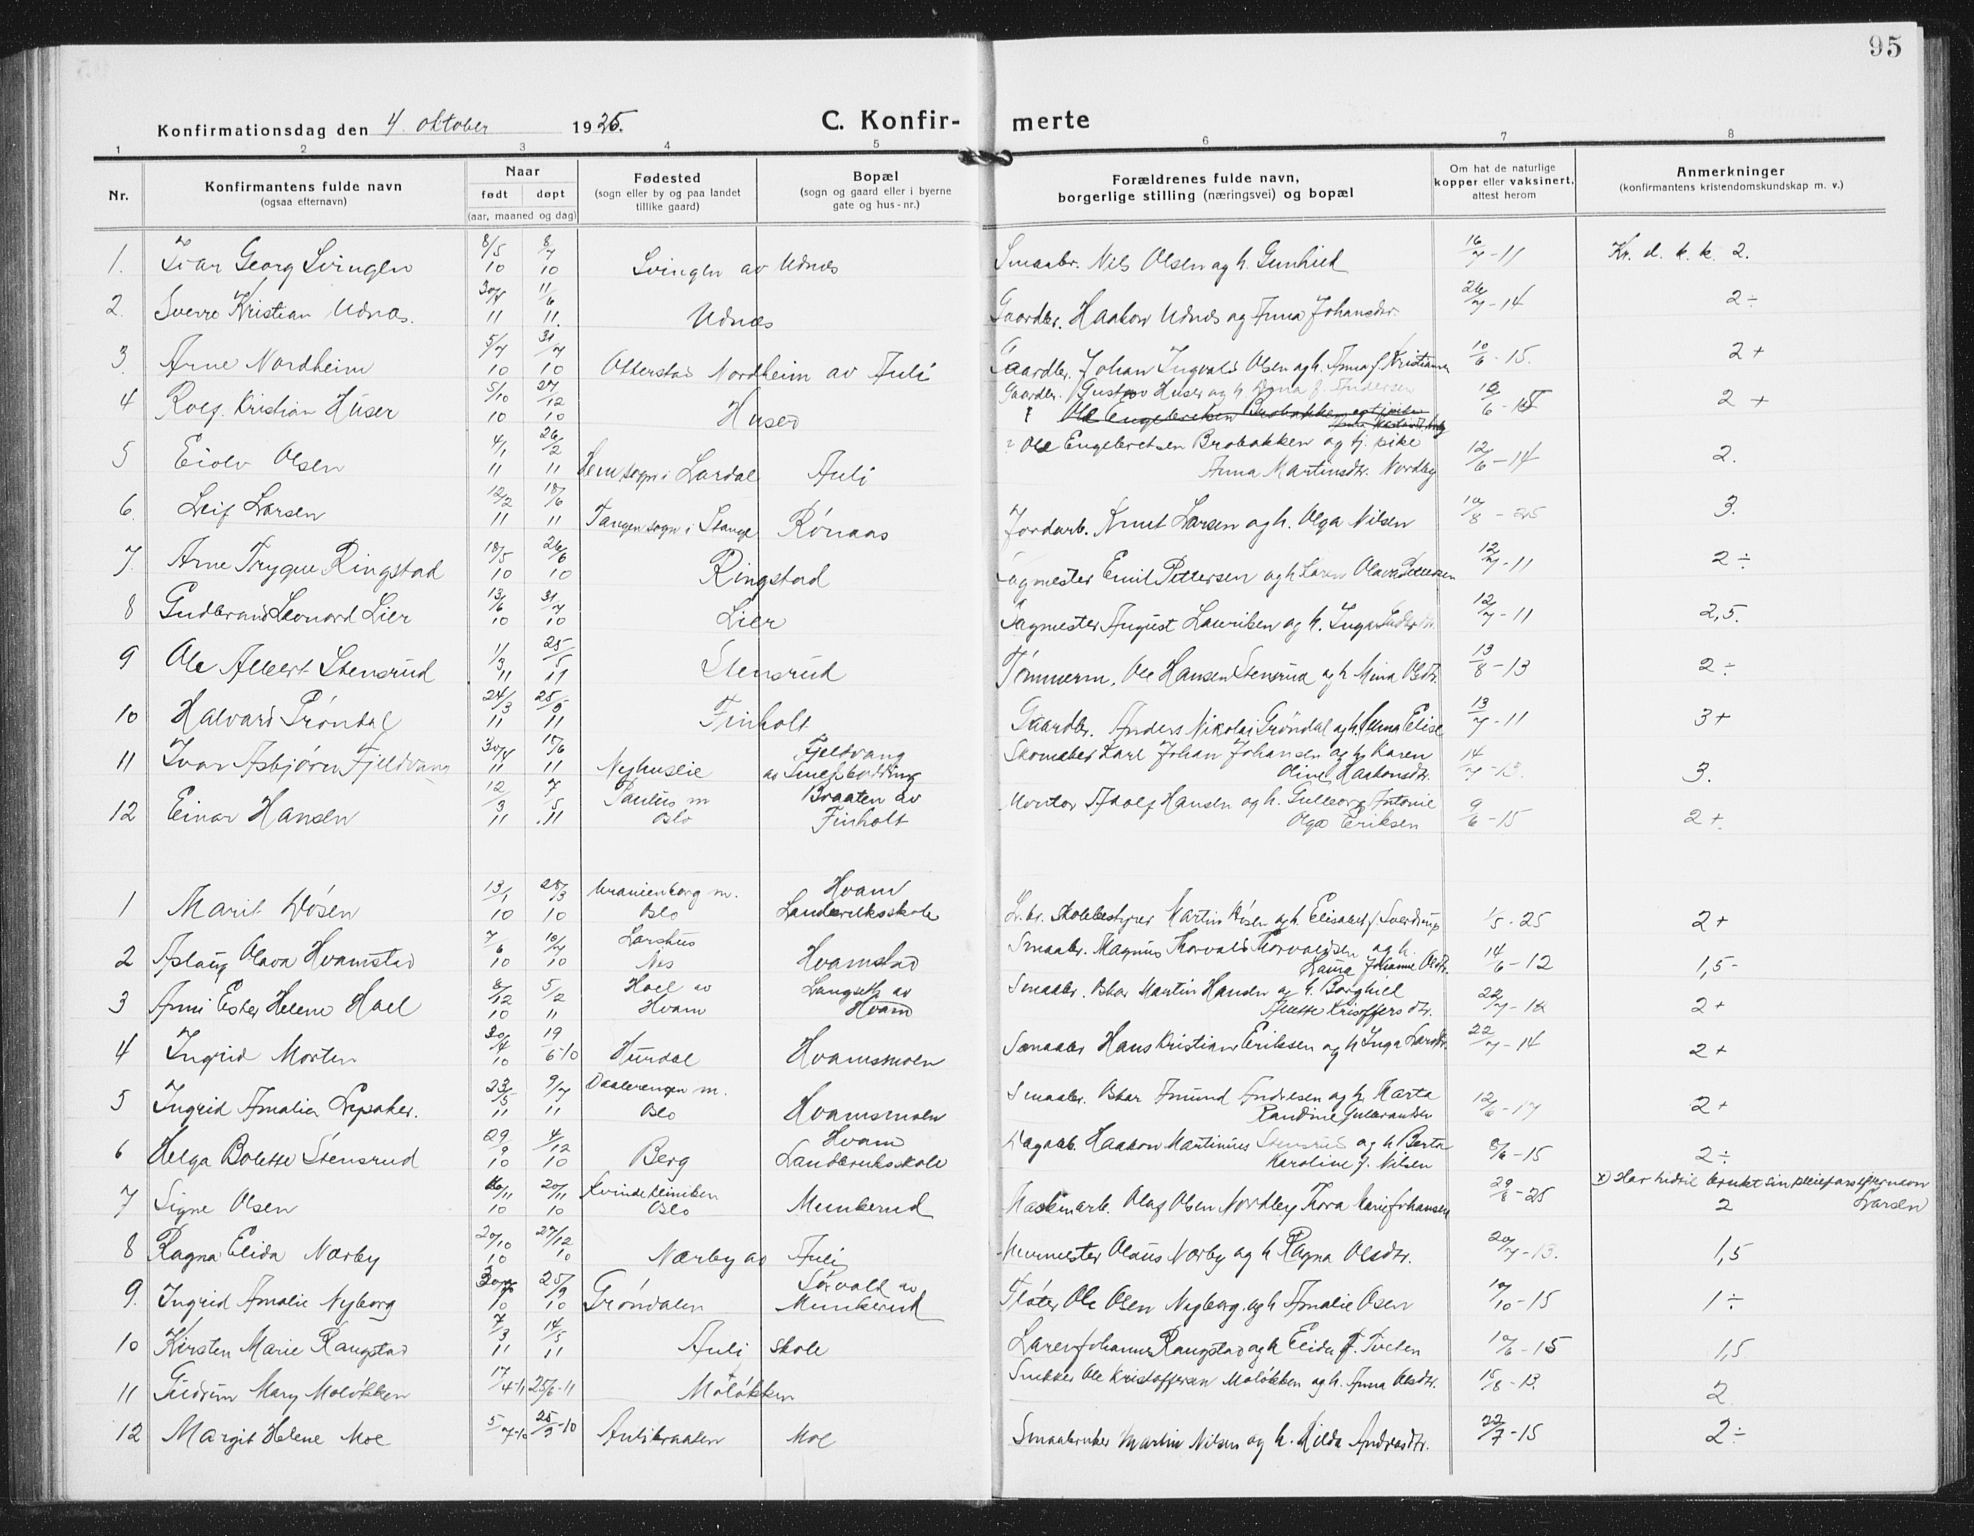 95
Konfirmationsdag den 4. oktober 1925. C. Konfir- merte
1 2 3 4 5 6 7 8
Nr. Konfirmantens fulde navn (ogsaa efternavn) Naar født døpt (aar, maaned og dag) Fødested (sogn eller by og paa landet tillike gaard) Bopæl (sogn og gaard eller i byerne gate og hus-nr.) Forældrenes fulde navn, borgerlige stilling (næringsvei) og bopæl Om hat de naturlige kopper eller vaksinert, attest herom Anmerkninger (konfirmantens kristendomskundskap m. v.)
1. Ivar Georg Svingen 8/5 10 8/7 10 Svingen av Udnæs Smaabr. Nils Olsen og h. Gunhild 16/7-11 Kr. d. k. k. 2.
2. Sverre Kristian Udnæs. 30/4 11 11/6 11. Udnæs Gaardbr. Haakon Udnæs og Anna Johansdr. 26/7-14 2÷
3. Arne Nordheim 5/7 10 31/7 10 Otterstad Nordheim av Auli Gaardbr. Johan Ingvald Olsen og h. Anna f. Kristiansen 10/6-15. 2+
4 Rolf Kristian Huser 5/10 10 27/12 10 Huser Gaardbr. Gustav Huser og h. f. Andersen 2+
Ole Engebretsen Brobakken og tj. pike
5 Eiolv Olsen 4/1 11 26/2 11 Hem sogn i Lardal Auli Ole Engebretsen Brobakken og tj. pike Anna Martinsdr. Nordby 12/6-14 2.
6. Leif Larsen 12/2 11 18/6 11 Tangen sogn i Stange Rønaas Jordarb. Knut Larsen og h. Olga Nilsen 3.
7. Arne Trygve Ringstad 18/5 10 26/6 10 Ringstad Sagmester Emil Pettersen og h. Olava Pettersen 12/7-11 2÷
8 Gudbrand Leonard Lier 13/6 10 31/7 10 Lier Sagmester August Lauritsen og h. Inga 12/7-11 2,5.
9 Ole Albert Stensrud 1/3 11 25/5 11 Stensrud Tømmerm. Ole Hansen Stensrud og h Mina Olsdtr. 13/8-13 2÷
10 Halvard Grøndal 24/3 11 25/5 11 Finholt Gaardbr. Anders Nikolai Grøndal og h. Elise 13/7-11 3+
11 Ivar Asbjørn Fjeldvang 30/4 11 18/6 11 Nyhuslie Fjeldvang av Skomaker Karl Johan Johansen og h. Karen Oline Haakonsdtr. 14/7-13. 3.
12 Einar Hansen 12/3 11 7/5 11 Paulus m Oslo Braaten av Finholt Montør Adolf Hansen og h. Gulborg Antonie Olga Eriksen 9/6-15 2+.
1 Marit Wøsen 13/1 10 28/3 10 Uranienborg m. Oslo Hvam Landbruksskole L.br. Skolebestyrer Martin Wøsen og h Elisabet f. Sverdrup 1/5-25 2+
2 Aslaug Olava Hvamstad 7/6 10 10/7 10 Larshus Nes Hvamstad Smaabr. Magnus Thorvald Thorvaldsen og h. Laura Johanne Olsdtr. 14/6-12 1,5-
3 Anni Ester Helene Hoel 8/12 10 5/2 11 Hoel av Hvam Langseth av Hvam Smaabr. Oskar Martin Hansen og h. Borghild Alette Kristoffersdtr. 2+
4 Ingrid Morten 30/4 10 19/6-10 Hurdal Hvamsmoen Smaabr. Hans Kristian Eriksen og h Inga Larsdtr. 22/7-14 2+
5 Ingrid Amalia Lysaker. 23/5 11 9/7 11 Vaalerengen m. Oslo Hvamsmoen Smaabr. Oskar Amund Andresen og h. Marta Randine Gulbrandsen 2+
6 Helga Bolette Stensrud 29/9 10 4/12 10 Berg Hvam Landbruksskole Dagarb. Haakon Martinius Stensrud og h Berta Karoline f. Nilsen 8/6-15 2÷
7 Signe Olsen 10 20/11 10 Kvindeklinikken Oslo Munkerud Maskinarb. Olaf Olsen Nordley Thora Marie Johansen 29/6-25 x) Har hidtil brukt sin pleiefars efternavn Larsen 2
8 Ragna Elida Nærby 20/10 10 27/12 10 Nærby av Auli Murmester Olaus Nærby og h Ragna Olsdtr. 20/7-13. 1,5
9. Ingrid Amalie Nyborg 10 25/9 10 Grøndalen Sørvald av Munkerud Fløter Ole Olsen Nyborg og h Amalie Olsen 10/10-15 1÷
10 Kirsten Marie Rangstad 7/3 11 14/5 11 Auli skole Lærer Johannes Rangstad og h Elida f. Tveten 10/6-15 1,5
11 Gudrun Mary Moløkken 17/4-11 25/6-11 Moløkken Snekker Ole Kristoffersen Moløkken og h. Anna Olsdtr. 15/8-13. 2
12 Margit Helene Moe 5/7-10 25/9-10 Aulibraaten Moe Smaabruker Martin Nilsen og h. Hilda Andreasdtr. 22/7-15 2÷